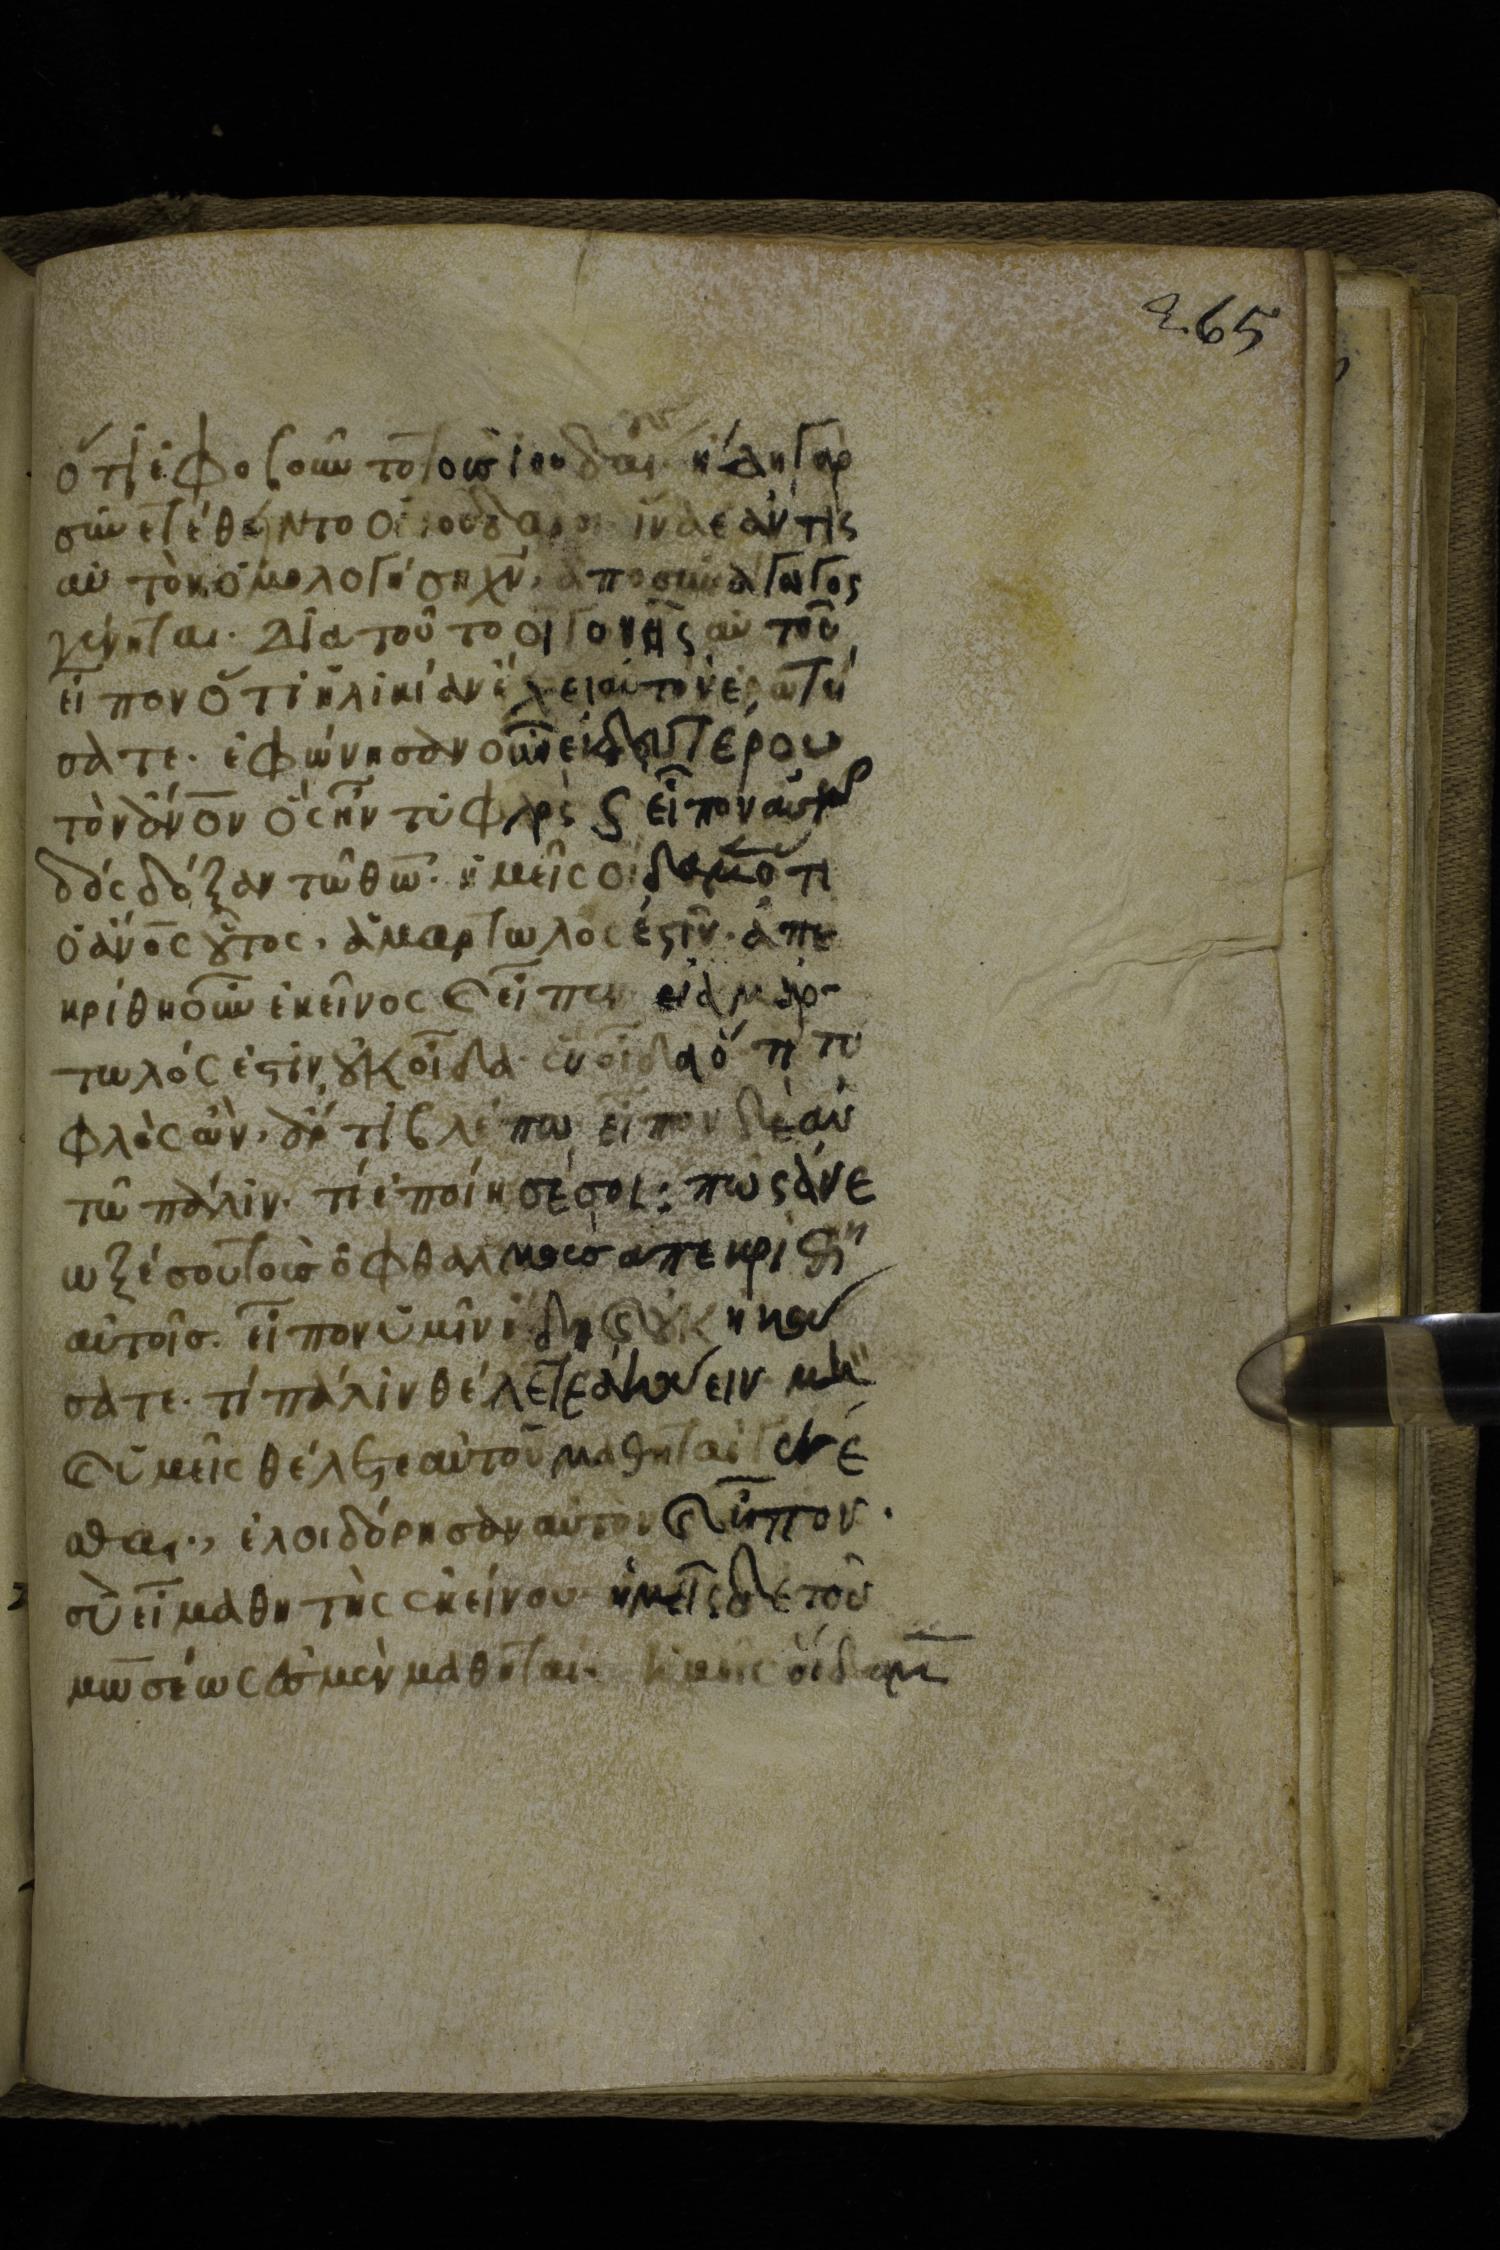 265
ὅτι ἐφοβοῦντο τοὺς ἰουδαί ἤδη γὰρ
συνετέθειντο οἱ ἰουδαῖοι ἵνα ἐάν τις
αὐτὸν ὁμολογήση χν̄, ἀποσυνάγωγος
γένηται. Διὰ τοῦτο οἱ γονεῖς αὐτοῦ
εἶπον ὅτι ἡλικίαν ἔχει αὐτὸν ἐρωτή
σατε. ἐφώνησαν οὖν ἐκ δευτέρου
τὸν ἀνο̅ν ὃς ἦν τυφλὸς ϛ εἶπον αὐτῶ
δὸς δόξαν τῶ θω̅. ἡμεῖς οἴδαμεν ὅτι
ὁ ἀνο̅ς οὗτος, ἁμαρτωλός ἐστιν. ἀπε
κρίθη οὖν ἐκεῖνος ϛ εἶπεν εἰ ἁμαρ-
τωλός ἐστιν, οὐκ οἶδα. ἓν οἶδα ὅτι τυ
φλὸς ὢν, ἄρτι βλέπω εἶπον δὲ αὐ
τῶ πάλιν. τί ἐποίησέ σοι; πῶς ἀνέ
ωξέ σου τοὺς ὀφθαλμοὺς ἀπεκρίθη
αὐτοῖς. εἶπον ὑμῖν ἤδη ϛ οὐκ ἠκού
σατε. τί πάλιν θέλετε ἀκούειν μὴ
ϛ ὑμεῖς θέλετε αὐτοῦ μαθηταὶ γενέ
σθαι., ἐλοιδόρησαν αὐτὸν ϛ εἶπον.
σὺ εἶ μαθητὴς ἐκείνου. ἡμεῖς δὲ τοῦ
μω̅σέως ἐσμὲν μαθηταί. ἡμεῖς οἴδαμεν